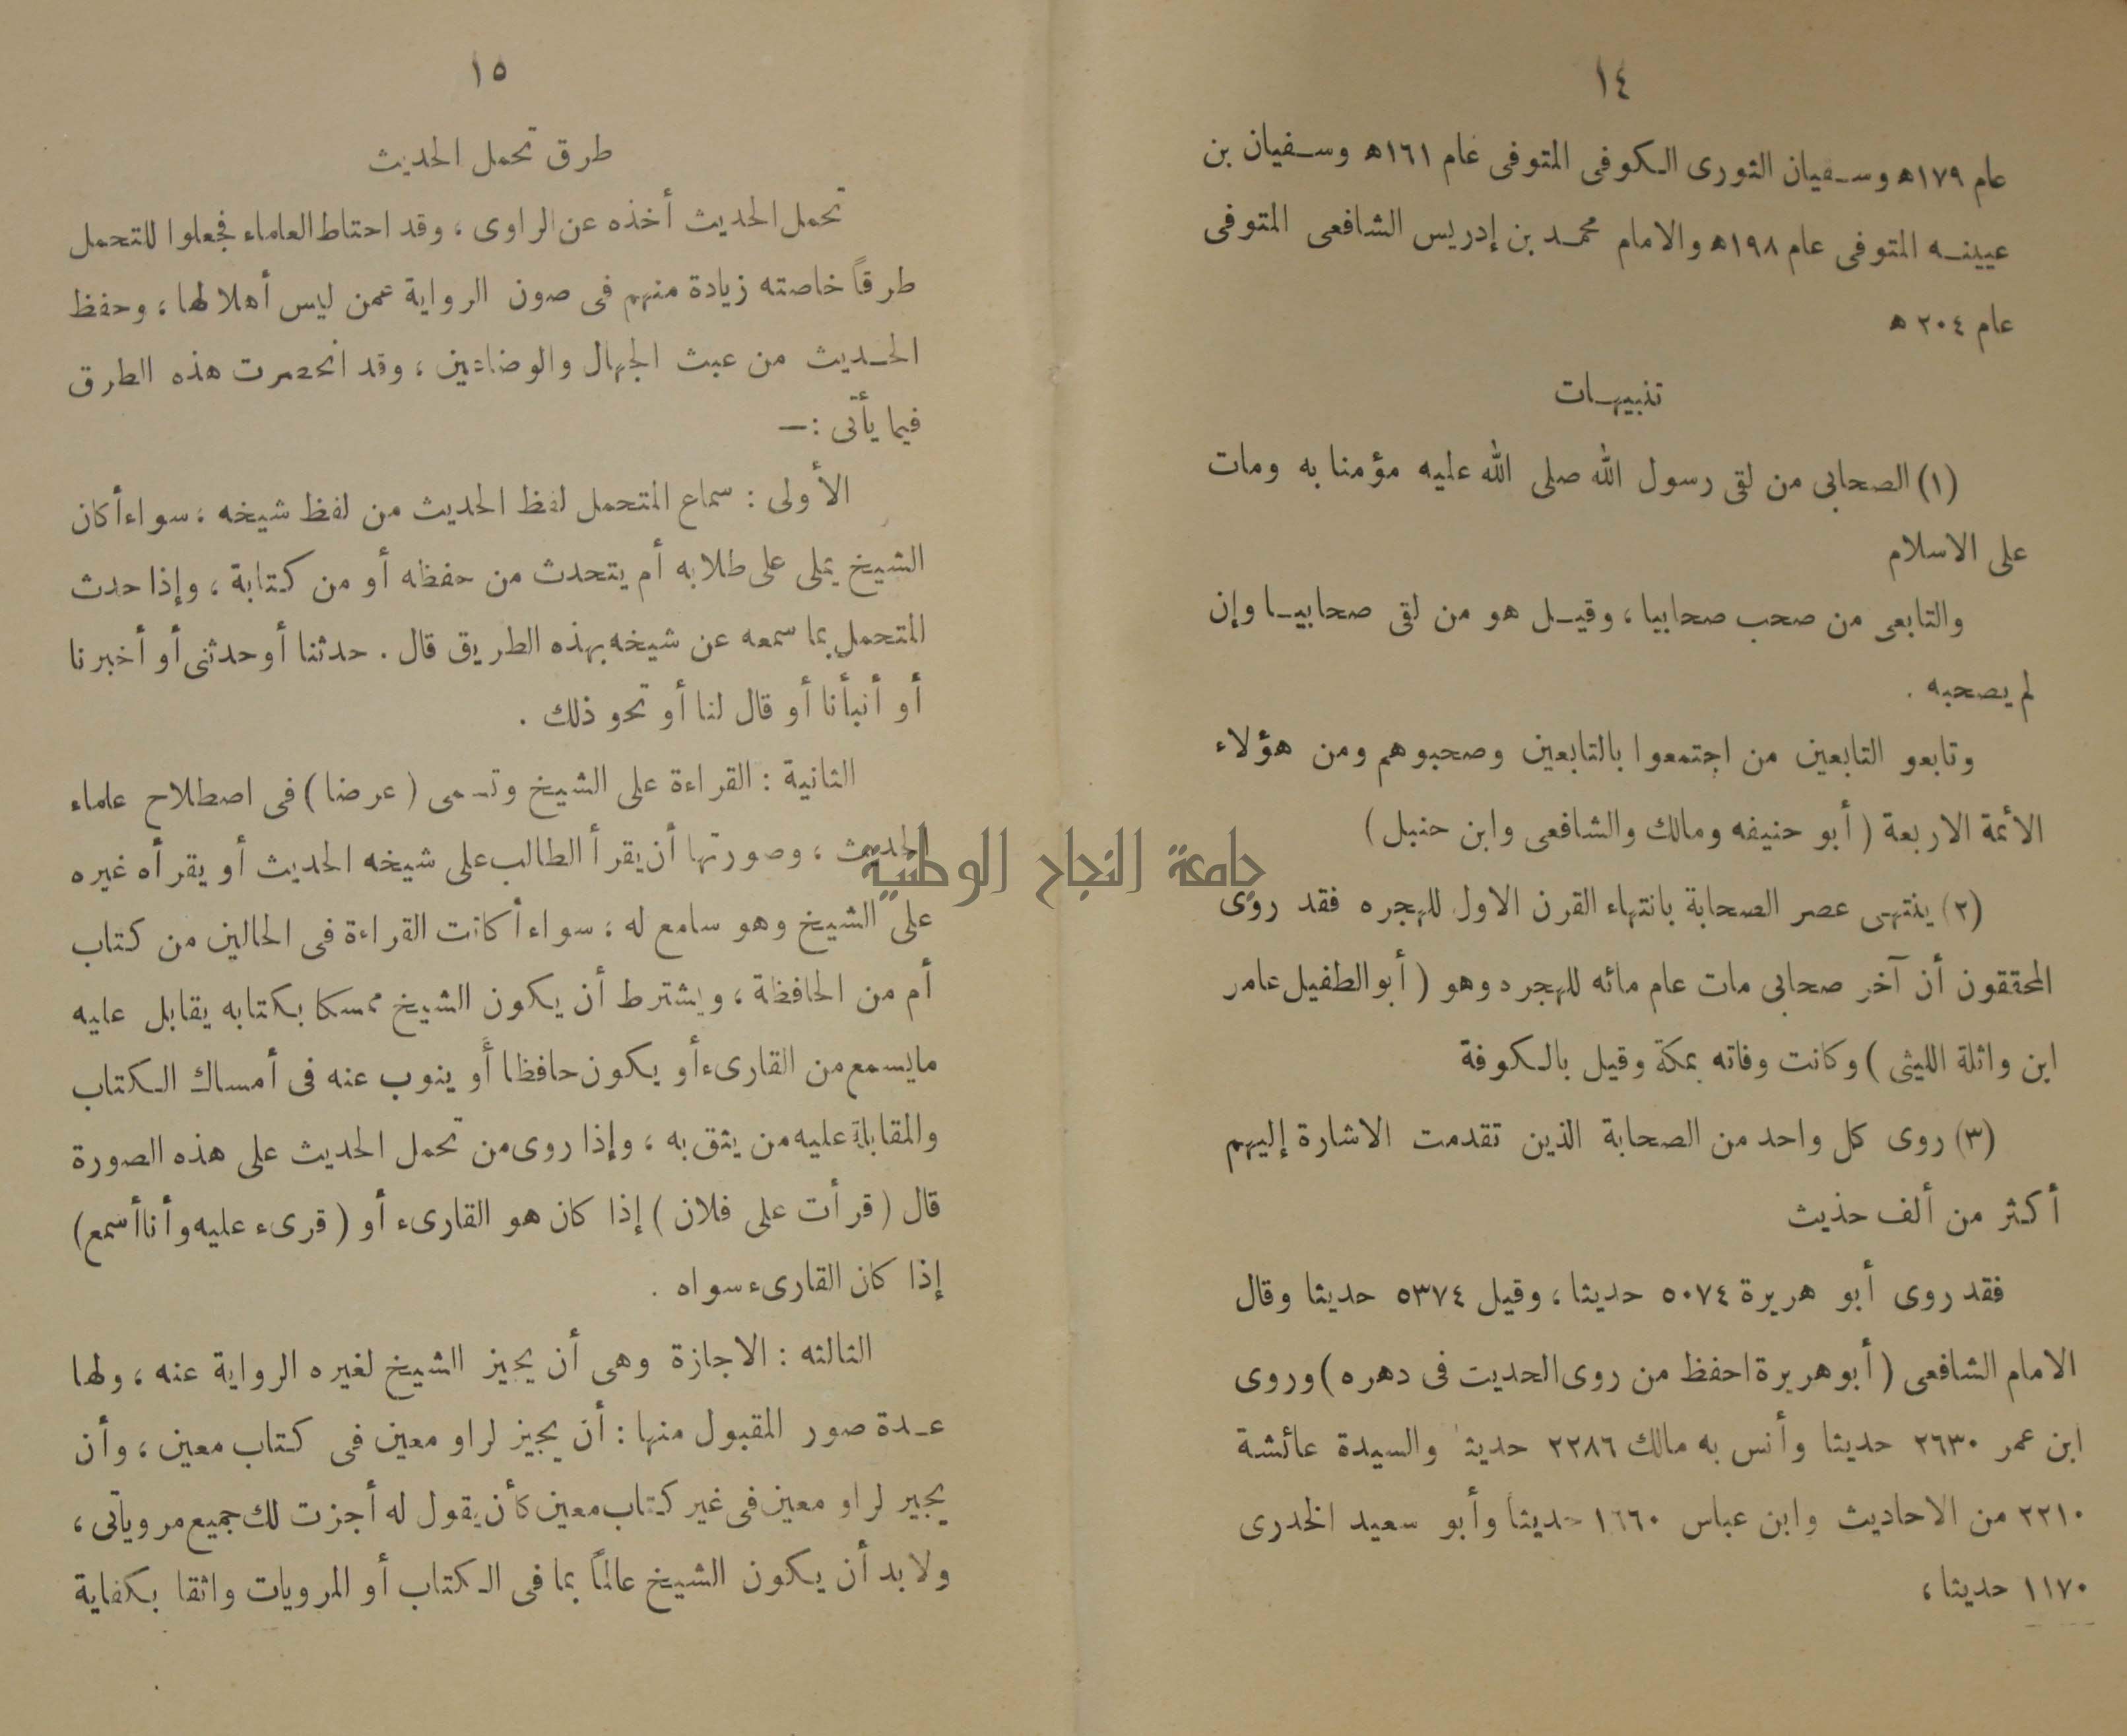 ١٤
عام ١٧٩ه وسفيان الثورى الكوفى المتوفى عام ١٦١ه وسفيان بن
عيينه المتوفى عام ١٩٨ه والامام محمد بن إدريس الشافعى المتوفى
عام ٢٠٤ ه
تنبيهات
(١) الصحابى من لقى رسول الله صلى الله عليه مؤمنا به ومات
على الاسلام
والتابعى من صحب صحابيا ، وقيل هو من لقى صحابيا وإن
لم يصحبه .
وتابعو التابعين من اجتمعوا بالتابعين وصحبوهم ومن هؤلاء
الأئمة الاربعة ( أبو حنيفه ومالك والشافعى وابن حنبل )
(٢) ينتهى عصر الصحابة بانتهاء القرن الاول للهجره فقد روى
المحققون أن آخر صحابى مات عام مائه للهجره وهو ( أبو الطفيل عامر
ابن واثلة الليثى ) وكانت وفاته بمكة وقيل بالكوفة
(٣) روى كل واحد من الصحابة الذين تقدمت الاشارة إليهم
أكثر من ألف حذيث
فقد روى أبو هريرة ٥٠٧٤ حديثا ، وقيل ٥٣٧٤ حديثا وقال
الامام الشافعى ( أبو هريرة احفظ من روى الحديت فى دهره ) وروى
ابن عمر ٢٦٣٠ حديثا وأنس به مالك ٢٢٨٦ حديثا والسيدة عائشة
٢٢١٠ من الاحاديث وابن عباس ١٦٦٠ حديثا وأبو سعيد الخدرى
١١٧٠ حديثا ،
١٥
طرق تحمل الحديث
تحمل الحديث أخذه عن الراوى ، وقد احتاط العلماء فجعلوا للتحمل
طرقاً خاصته زيادة منهم فى صون الرواية عمن ليس أهلا لها ، وحفظ
الحديث من عبث الجهال والوضاعين ، وقد انحصرت هذه الطرق
فيما يأتى :—
الأولى : سماع المتحمل لفظ الحديث من لفظ شيخه ، سواء أكان
الشيخ يملى على طلابه أم يتحدث من حفظه أو من كتابة ، وإذا حدث
المتحمل بما سمعه عن شيخه بهذه الطريق قال . حدثنا أو حدثنى أو أخبرنا
أو أنبأنا أو قال لنا أو نحو ذلك .
الثانية : القراءة على الشيخ وتسمى ( عرضا ) فى اصطلاح علماء
الحديث ، وصورتها أن يقرأ الطالب على شيخه الحديث أو يقرأه غيره
على الشيخ وهو سامع له ، سواء أكانت القراءة فى الحالين من كتاب
أم من الحافظة ، ويشترط أن يكون الشيخ ممسكا بكتابه يقابل عليه
مايسمع من القارىء أو يكون حافظا أو ينوب عنه فى أمساك الكتاب
والمقابلة عليه من يثق به ، وإذا روى من تحمل الحديث على هذه الصورة
قال ( قرأت على فلان ) إذا كان هو القارىء أو ( قرىء عليه وأنا أسمع )
إذا كان القارىء سواه .
الثالثه : الاجازة وهى أن يجيز الشيخ لغيره الرواية عنه ، ولها
عدة صور المقبول منها : أن يجيز لراو معين فى كتاب معين ، وأن
يجير لراو معين فى غير كتاب معين كأن يقول له أجزت لك جميع مروياتى ،
ولا بد أن يكون الشيخ عالماً بما فى الكتاب أو المرويات واثقا بكفاية
جامعة النجاح الوطنية